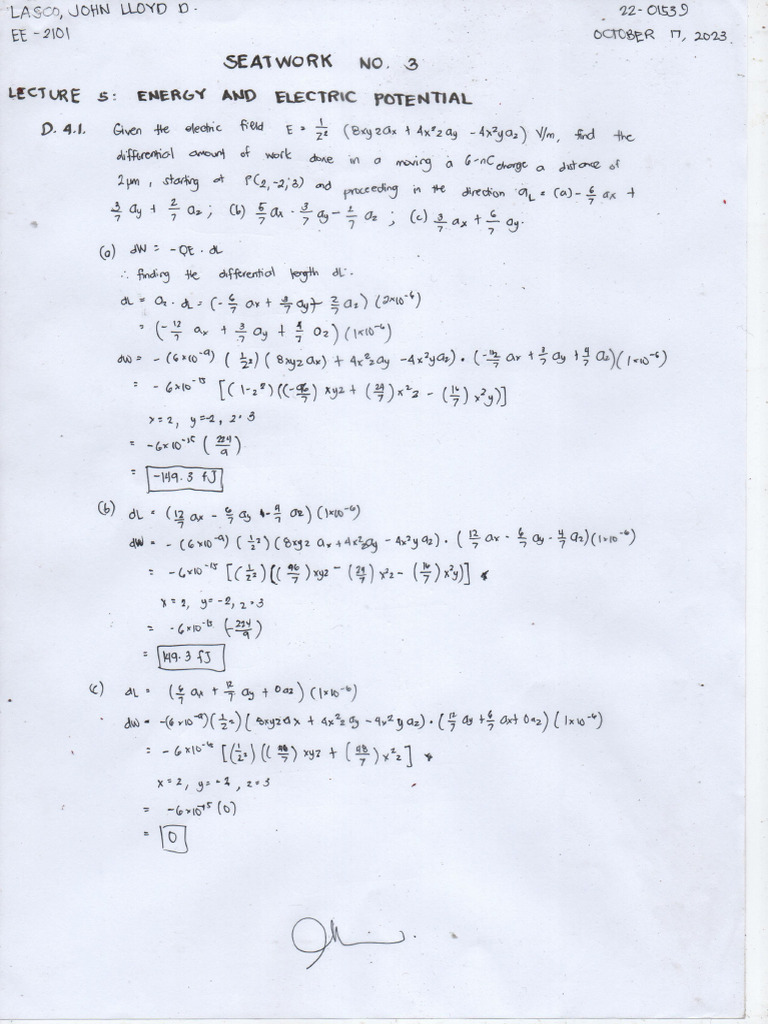 LASCO, JOHN LLOYD D. 22-01539
EE-2101 OCTOBER 17, 2023
SEATWORK NO. 3
LECTURE 5: ENERGY AND ELECTRIC POTENTIAL
D. 4.1. Given the electric field E = 1/z² (8xyzax + 4x²zay - 4x²yaz) V/m, find the
differential amount of work done in a moving a 6-nC charge a distance of
2μm, starting at P(2,-2,3) and proceeding in the direction aL = (a) - 6/7 ax +
3/7 ay + 2/7 az; (b) 6/7 ax · 3/7 ay - 2/7 az; (c) 3/7 ax + 6/7 ay.
(a) dW = -QE · dL
∴ finding the differential length dL.
dL = aL · dL = (-6/7 ax + 3/7 ay + 2/7 az)(2×10⁻⁶)
= (-12/7 ax + 3/7 ay + 4/7 az)(1×10⁻⁶)
dW = -(6×10⁻⁹)(1/z²)(8xyzax) + 4x²zay - 4x²yaz) · (-12/7 ax + 3/7 ay + 4/7 az)(1×10⁻⁶)
= -6×10⁻¹⁵ [(1-z²)((-96/7) xyz + (24/7) x²z - (16/7) x²y)]
x = 2, y = -2, z = 3
= -6×10⁻¹⁵ (224/9)
= -149.3 fJ
(b) dL = (12/7 ax - 6/7 ay - 4/7 az)(1×10⁻⁶)
dW = -(6×10⁻⁹)(1/z²)(8xyz ax + 4x²zay - 4x²yaz) · (12/7 ax - 6/7 ay - 4/7 az)(1×10⁻⁶)
= -6×10⁻¹⁵ [(1/z²)((96/7) xyz - (24/7) x²z - (16/7) x²y)]
x = 2, y = -2, z = 3
= -6×10⁻¹⁵ (-224/9)
= 149.3 fJ
(c) dL = (6/7 ax + 12/7 ay + 0az)(1×10⁻⁶)
dW = -(6×10⁻⁹)(1/z²)(8xyzax + 4x²zay - 4x²yaz) · (12/7 ay + 6/7 ax + 0az)(1×10⁻⁶)
= -6×10⁻¹⁵ [(1/z²)((48/7) xyz + (48/7) x²z]
x = 2, y = -2, z = 3
= -6×10⁻¹⁵ (0)
= 0